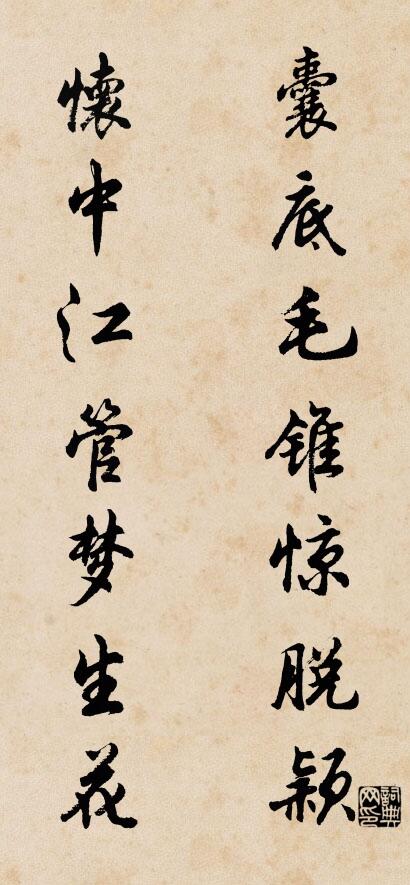 囊底毛锥惊脱颖
懷中江管梦生花
词典网印